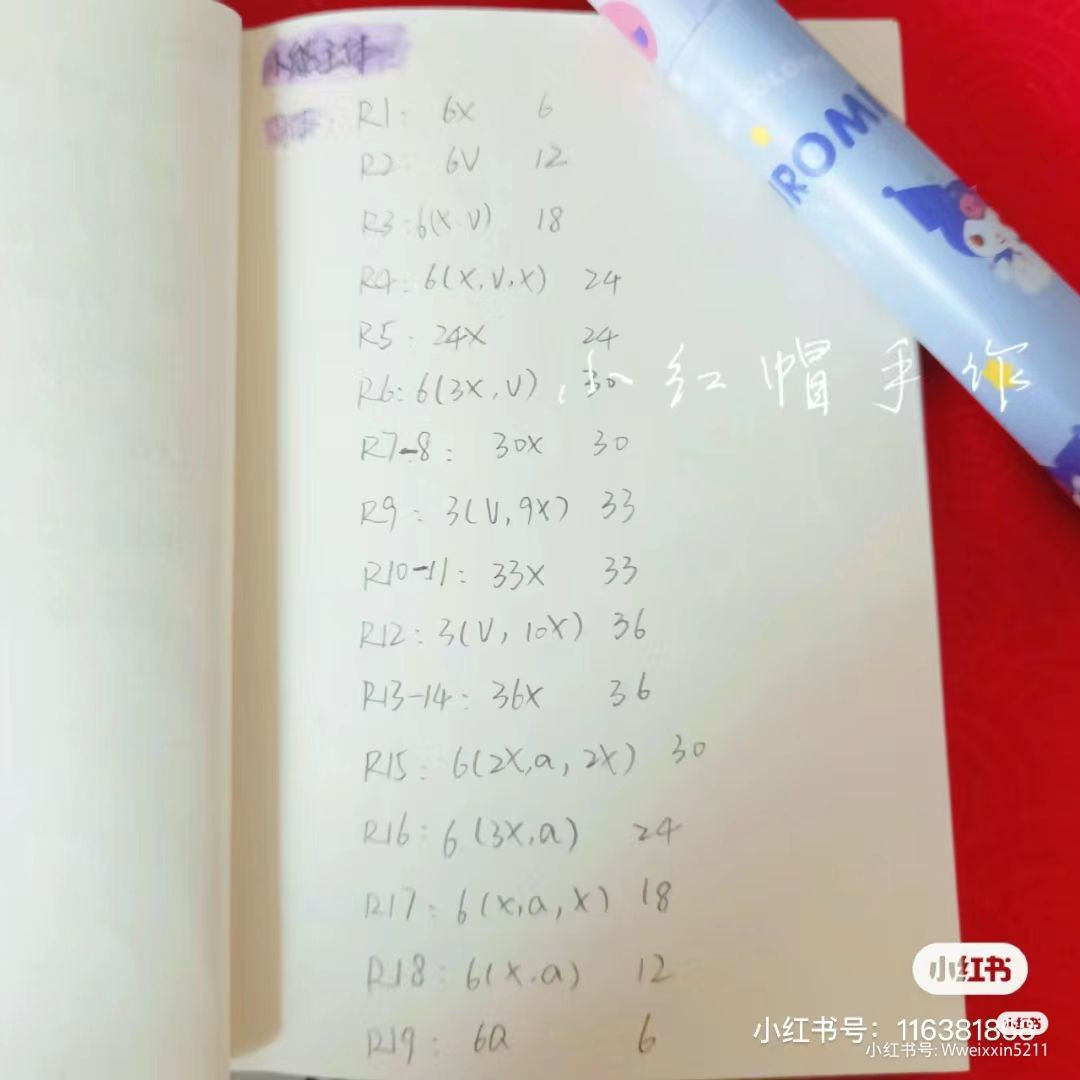 小熊主体
R1: 6X 6
R2: 6V 12
R3: 6(X.V) 18
R4: 6(X,V,X) 24
R5: 24X 24
R6: 6(3X,V) 30
小红帽手作
R7-8: 30X 30
R9: 3(V,9X) 33
R10-11: 33X 33
R12: 3(V,10X) 36
R13-14: 36X 36
R15: 6(2X,a,2X) 30
R16: 6(3X,a) 24
R17: 6(X,a,X) 18
R18: 6(X.a) 12
R19: 6a 6
ROMI
小红书
小红书
小红书号: Wweixxin5211